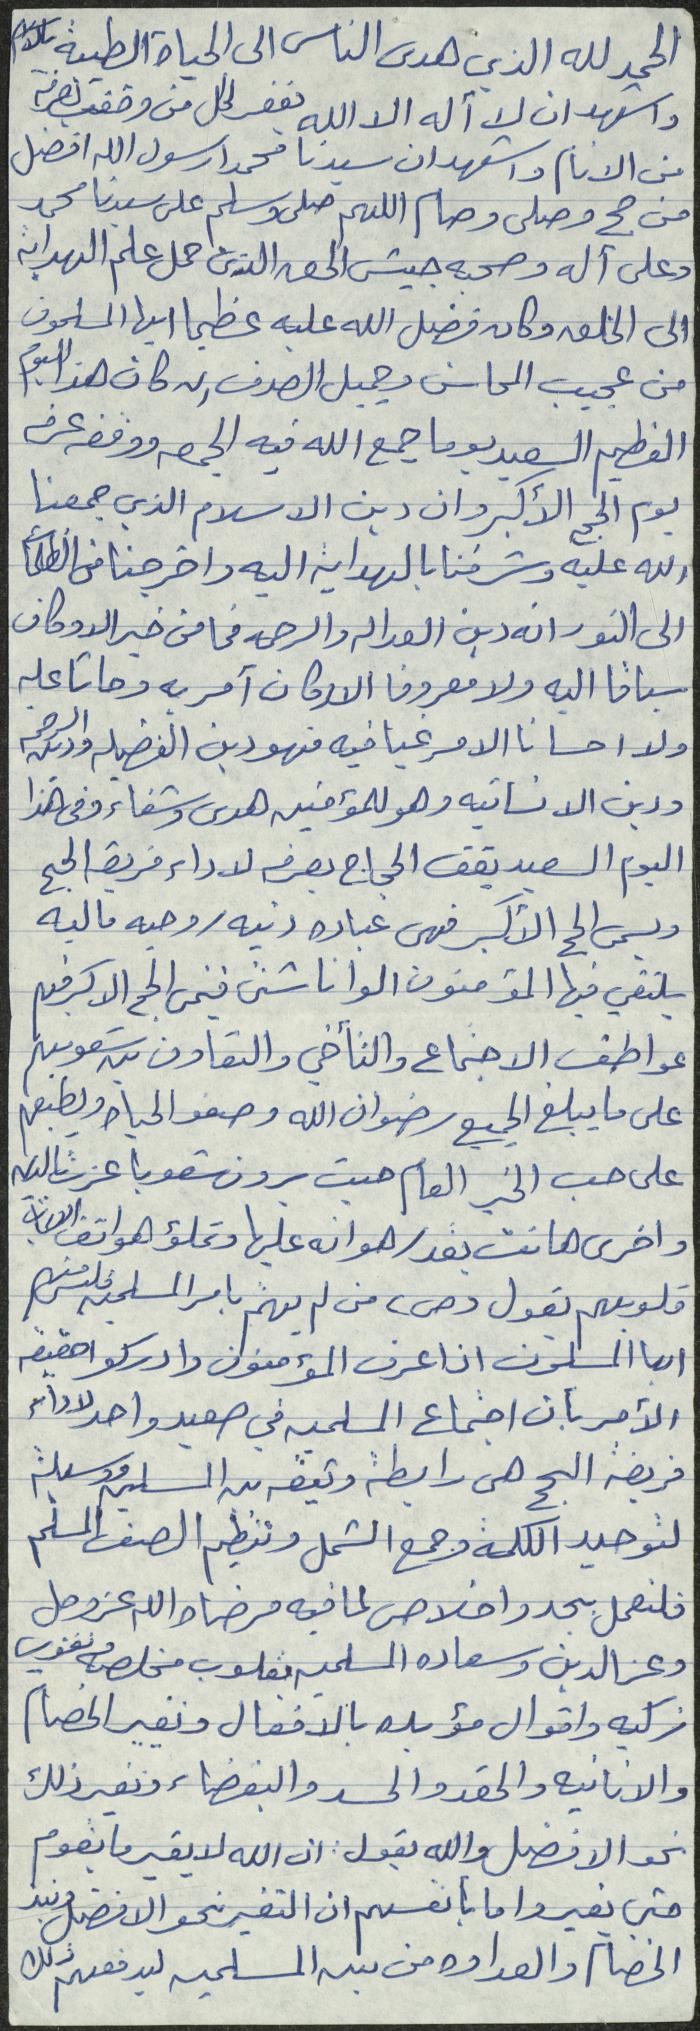 الحمد لله الذي هدى الناس الى الحياة الطيبة
واشهد ان لا أله الا الله يغفر لكل من وقف بعرفة
من الانام واشهد ان سيدنا محمدا رسول الله افضل
من حج وصلى وصام اللهم صلى وسلم على سيدنا محمد
وعلى آله وصحبه جيش الحق الذين حمل علم الهداية
الى الخلق وكان فضل الله عليه عظيما ايها المسلمون
من عجيب المحاسن وجميل الصدف ان كان هذا اليوم
العظيم السعيد يوما جمع الله فيه الجمعه ووقفه عرفه
يوم الحج الأكبر وان دين الاسلام الذي جمعنا
الله عليه وشرفنا بالهداية اليه واخرجنا من الظلمات
الى النور انه دين العداله والرحمه فما من خير الا وكان
سباقا اليه ولا معروفا الا وكان آمر به وحاثا عليه
ولا احسانا الا مرغبا فيه فهو دين الفضيله ودين الرحمة
ودين الانسانيه وهو للمؤمنين هدى وشفاء وفي هذا
اليوم السعيد يقف الحجاج بعرفه لاداء فريضة الحج
ويسمى الحج الأكبر فهى عباده دنيه روحيه ماليه
يلتقي فيها المؤمنون الوانا شتى فينمى الحج الاكبر فيهم
عواطف الاجتماع والتأخي والتعاون بين شعوبهم
على ما يبلغ الجميع رضوان الله وصفو الحياه ويطبعهم
على حب الخير العام حيث يرون شعوبا عزت
واخرى هانت بقدر هوانه عليها وتملؤ هواتف
قلوبهم بقول من لم يهتم بامر المسلمين فليس منهم
ايها المسلمون اذا عرف المؤمنون وادركوا حقيقه
الأمر بأن اجتماع المسلمين في صعيد واحد لاداء
فريضة الحج هى رابطة وثيقه بين المسلمين ووسيلة
لتوحيد الكلمة وجمع الشمل وتنظيم الصف المسلم
فلنعمل بجد واخلاص لما فيه مرضاه الله عز وجل
وعز الدين وسعاده المسلمين بقلوب مخلصه ونفوس
زكيه واقوال مؤيده بالافعال ونغير الخصام
والانانيه والحقد والحسد والبغضاء ونغير ذلك
نحو الافضل والله يقول: ان الله لا يغير ما بقوم
حتى يغيروا ما بأنفسهم ان التغير نحو الافضل ونبذ
الخصام والعداوه من بين المسلمين ليدفعهم ذلك